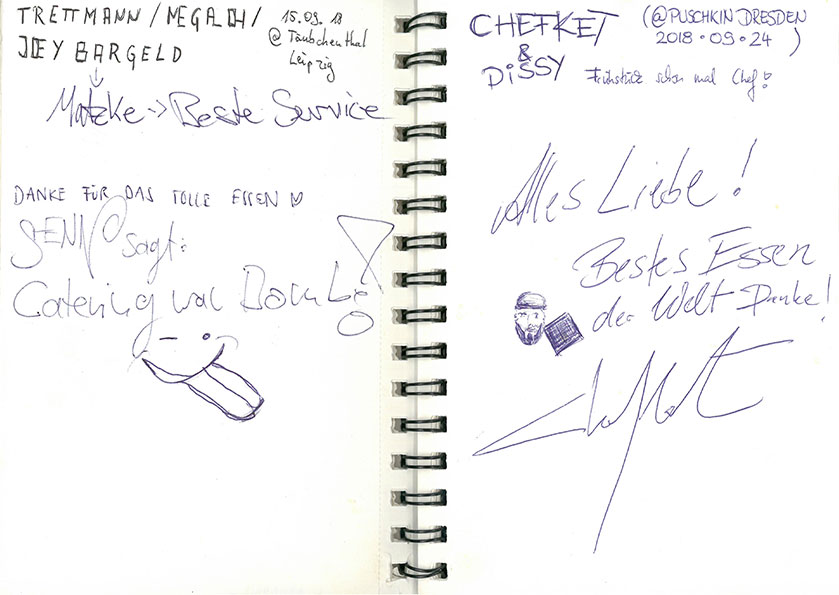 TRETTMANN / MEGALOH /
JOEY BARGELD
15.09.18
@ Täubchenthal
Leipzig
Matzke -> Beste Service
DANKE FÜR DAS TOLLE ESSEN
sagt:
Catering war Bombe!
CHEFKET
&
DISSY
(@PUSCHKIN DRESDEN
2018.09.24)
Frühstück schon mal Chef!
Alles Liebe!
Bestes Essen
der Welt Danke!